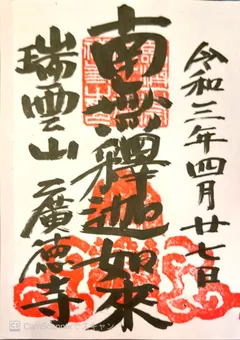 令和三年四月廿七日
南無釋迦如來
瑞雲山 廣德寺
CamScannerでスキャン